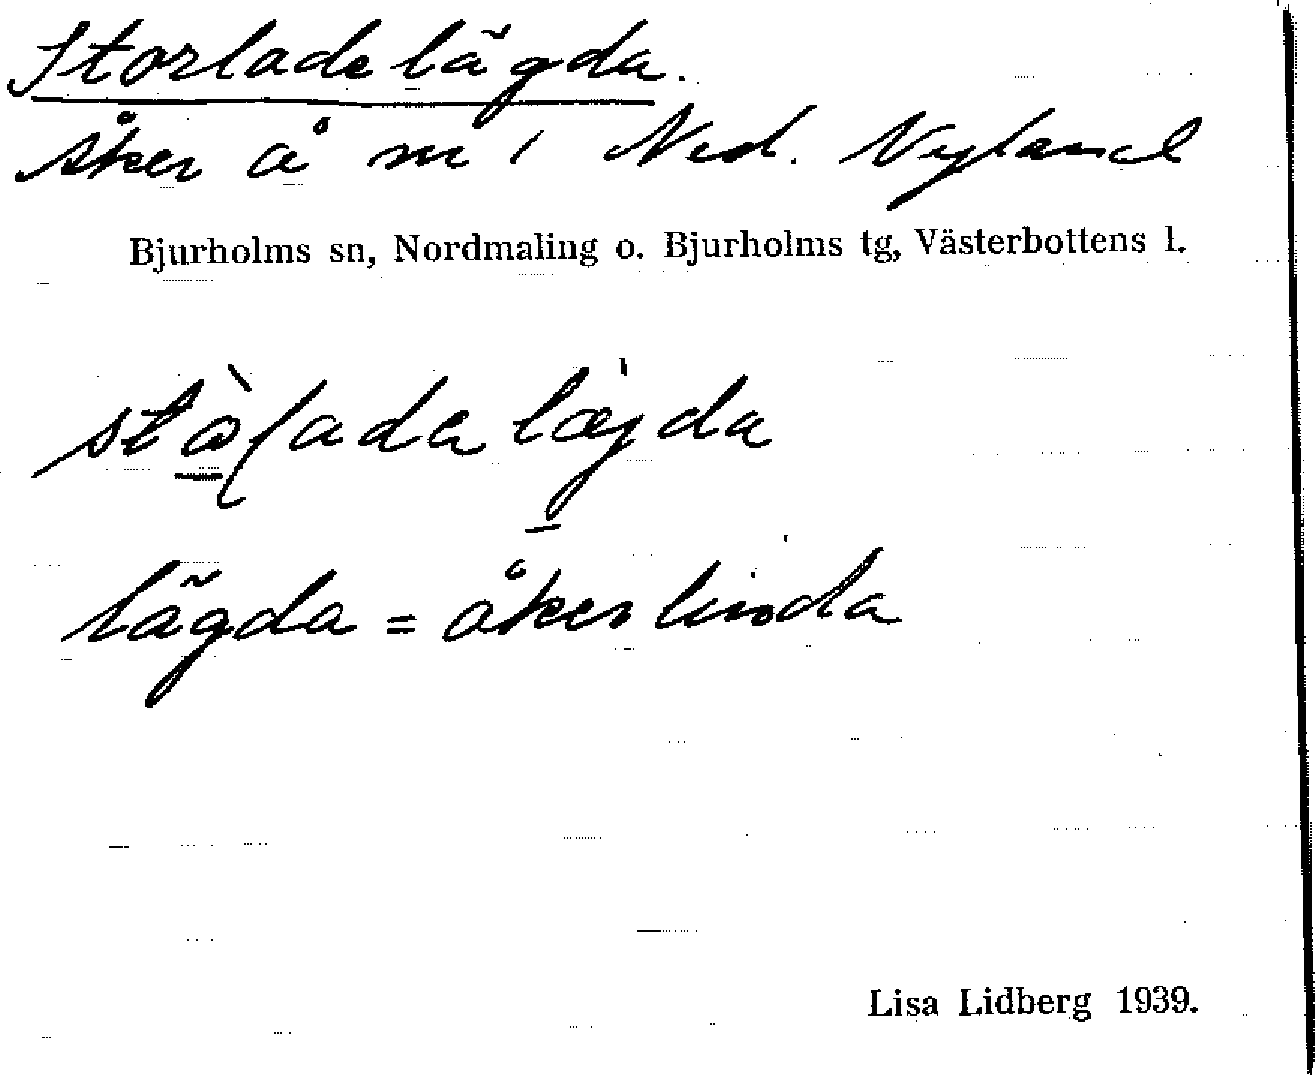 Storladelägda.
åker å nr 1 Ned. Nyland
Bjurholms sn, Nordmaling o. Bjurholms tg, Västerbottens l.
lägda = åkerlinda
Lisa Lidberg 1939.